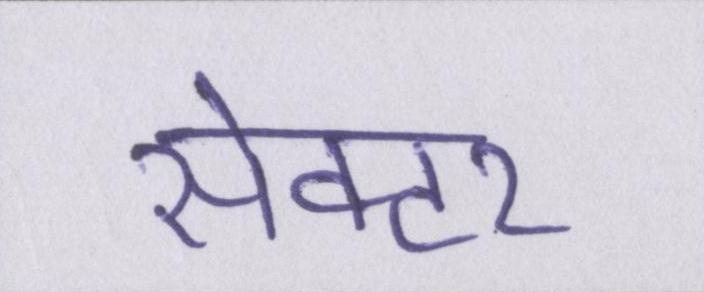 सेक्टर